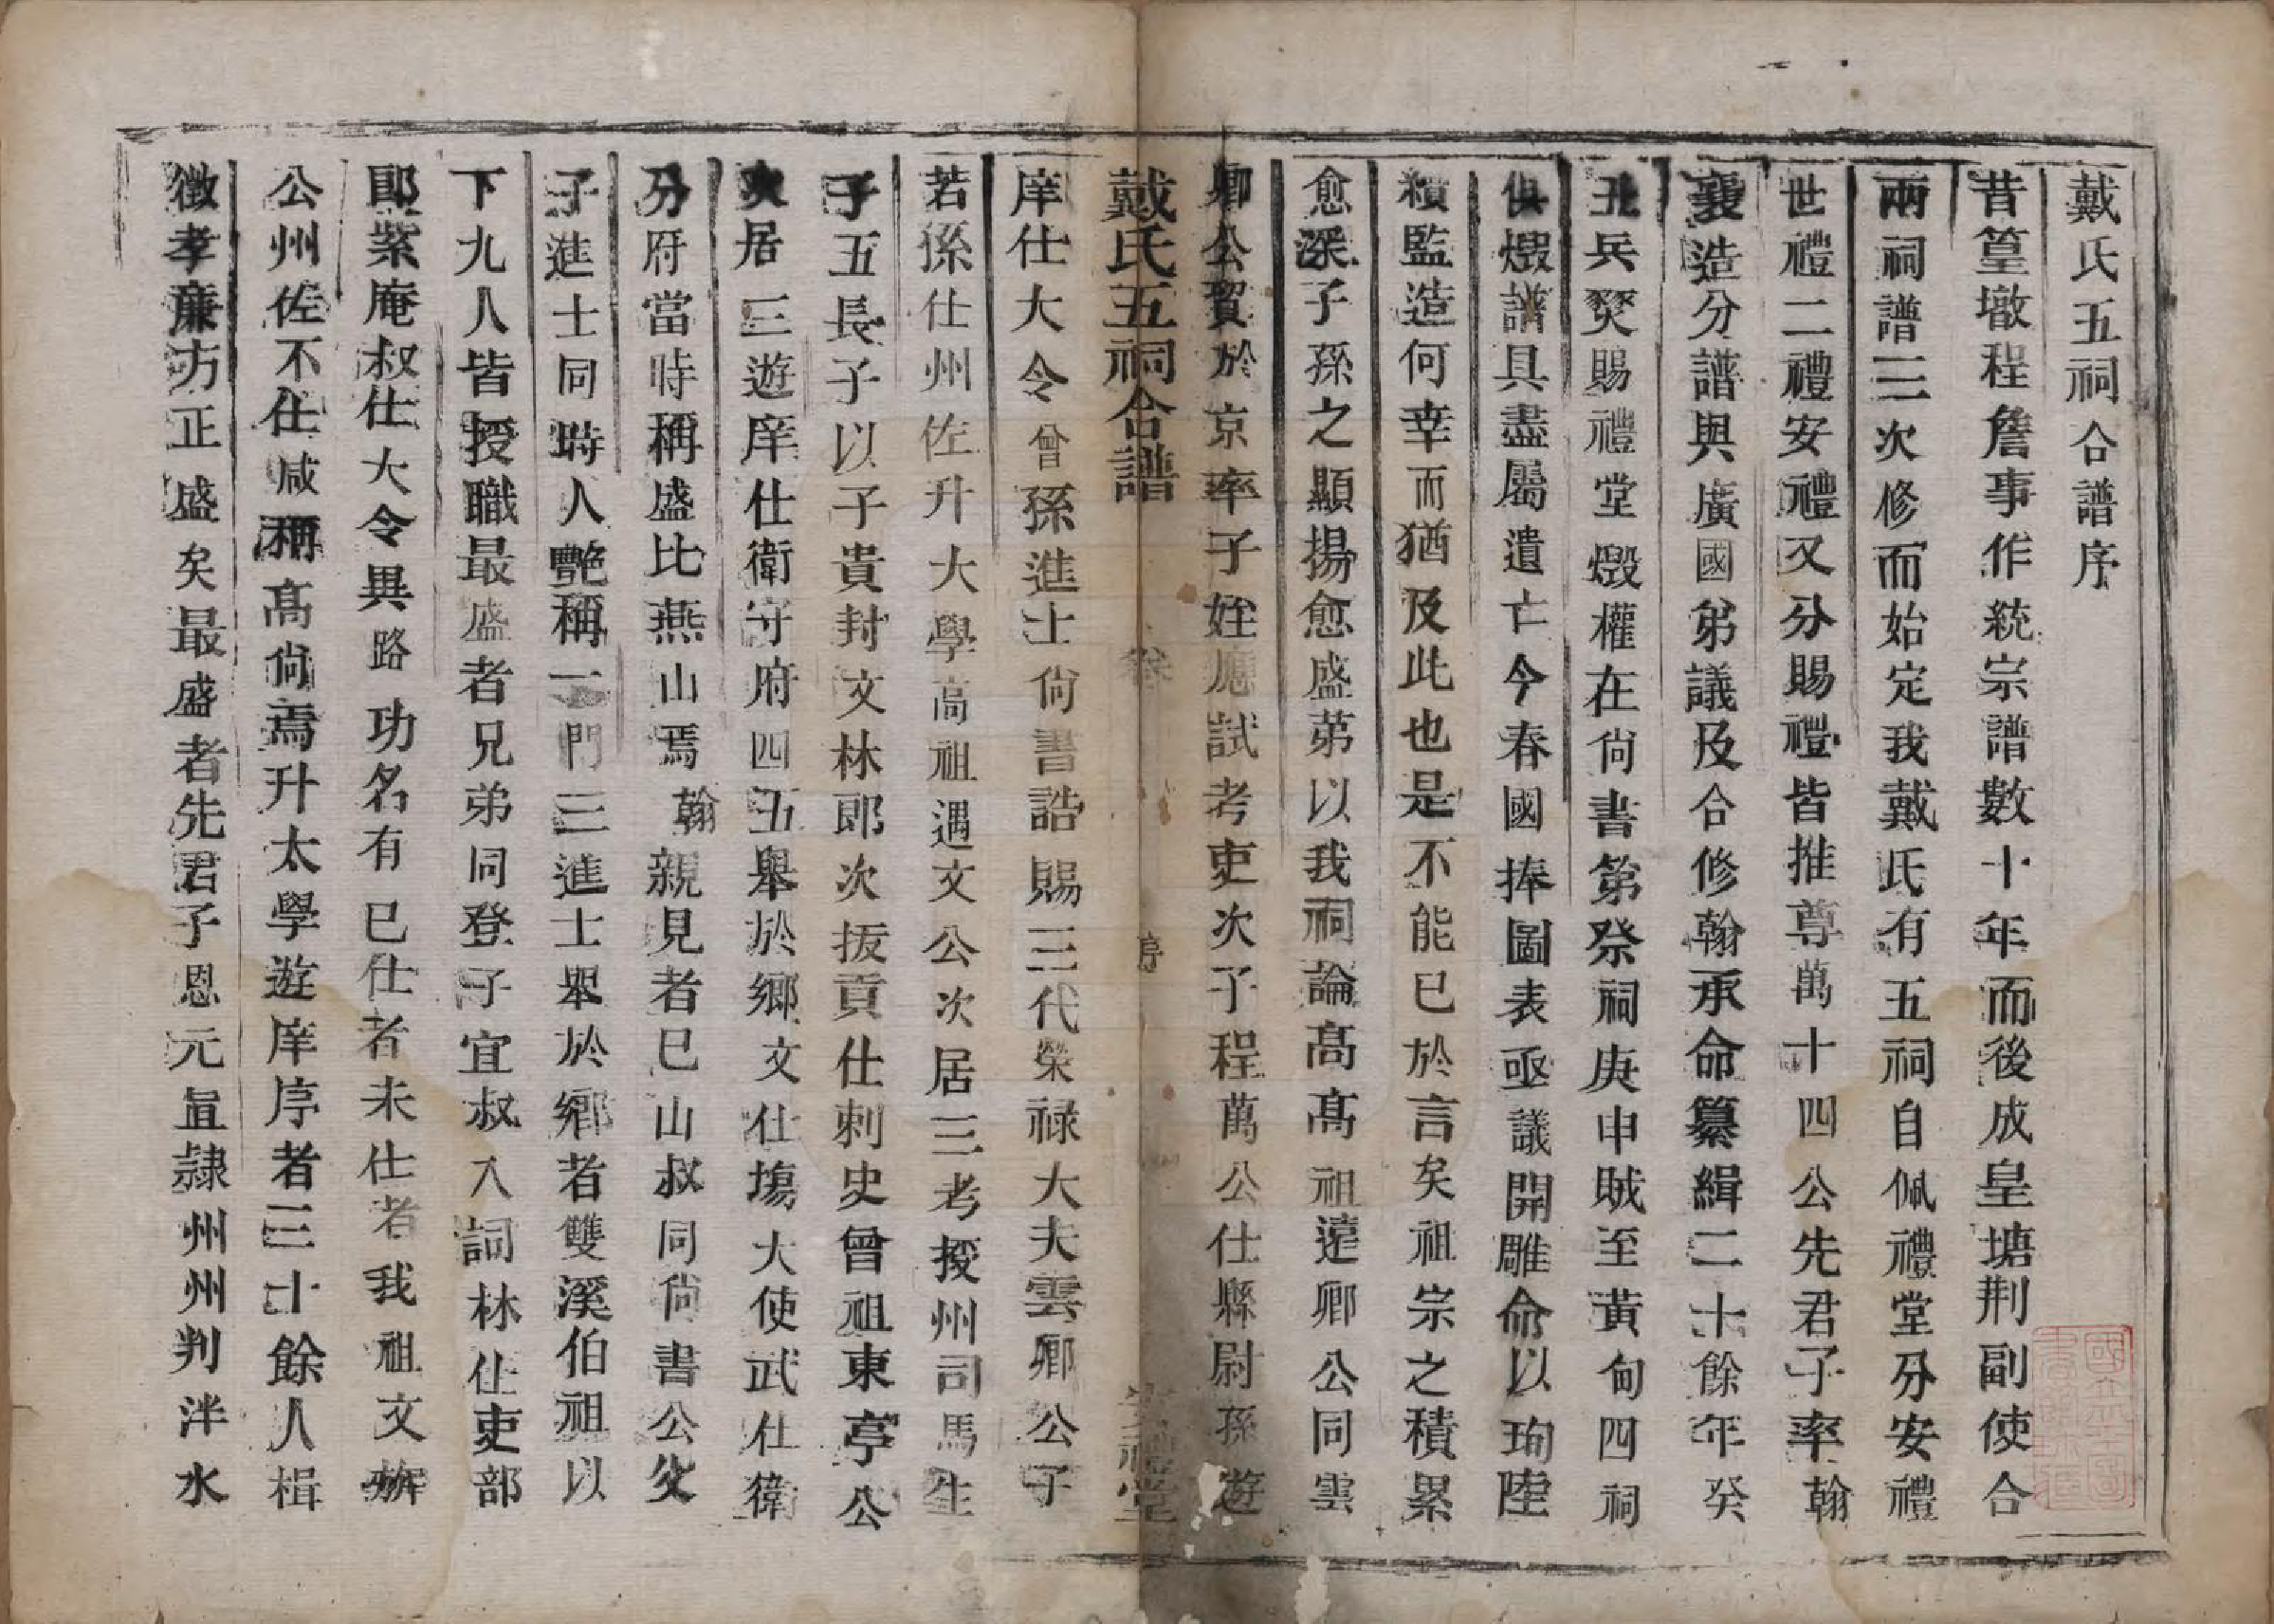 戴氏五祠合譜序
昔篁墩程詹事作統宗譜數十年而後成皇塘荆副使合
兩祠譜三次修而始定我戴氏有五祠自佩禮堂分安禮
世禮二禮安禮又分賜禮皆推尊萬十四公先君子率翰
襄造分譜與廣國弟議及合修翰承命纂緝二十餘年癸
丑兵燹賜禮堂燬權在尚書第祭祠庚申賊至黃甸四祠
俱燬譜具盡屬遺亡今春國捧圖表亟議開雕命以珣陸
續監造何幸而猶及此也是不能已於言矣祖宗之積累
愈深子孫之顯揚愈盛苐以我祠論高高祖遠卿公同雲
卿公貿於京率子姪應試考吏次子程萬公仕縣尉孫遊
戴氏五祠合譜 卷 序 安禮堂
庠仕大令曾孫進士尚書誥賜三代榮祿大夫雲卿公子
若孫仕州佐升大學高祖遇文公次居三考授州司馬生
子五長子以子貴封文林郎次拔貢仕刺史曾祖東亭公
次居三遊庠仕衛守府四五舉於鄉文仕塲大使武仕衛
分府當時稱盛比燕山焉翰親見者巳山叔同尚書公父
子進士同時人艷稱一門三進士舉於鄉者雙溪伯祖以
下九人皆授職最盛者兄弟同登子宜叔入詞林仕吏部
郎紫庵叔仕大令異路功名有已仕者未仕者我祖文
公州佐不仕咸稱高尚焉升太學遊庠序者三十餘人楫
徵孝廉方正盛矣最盛者先君子恩元直隸州州判泮水